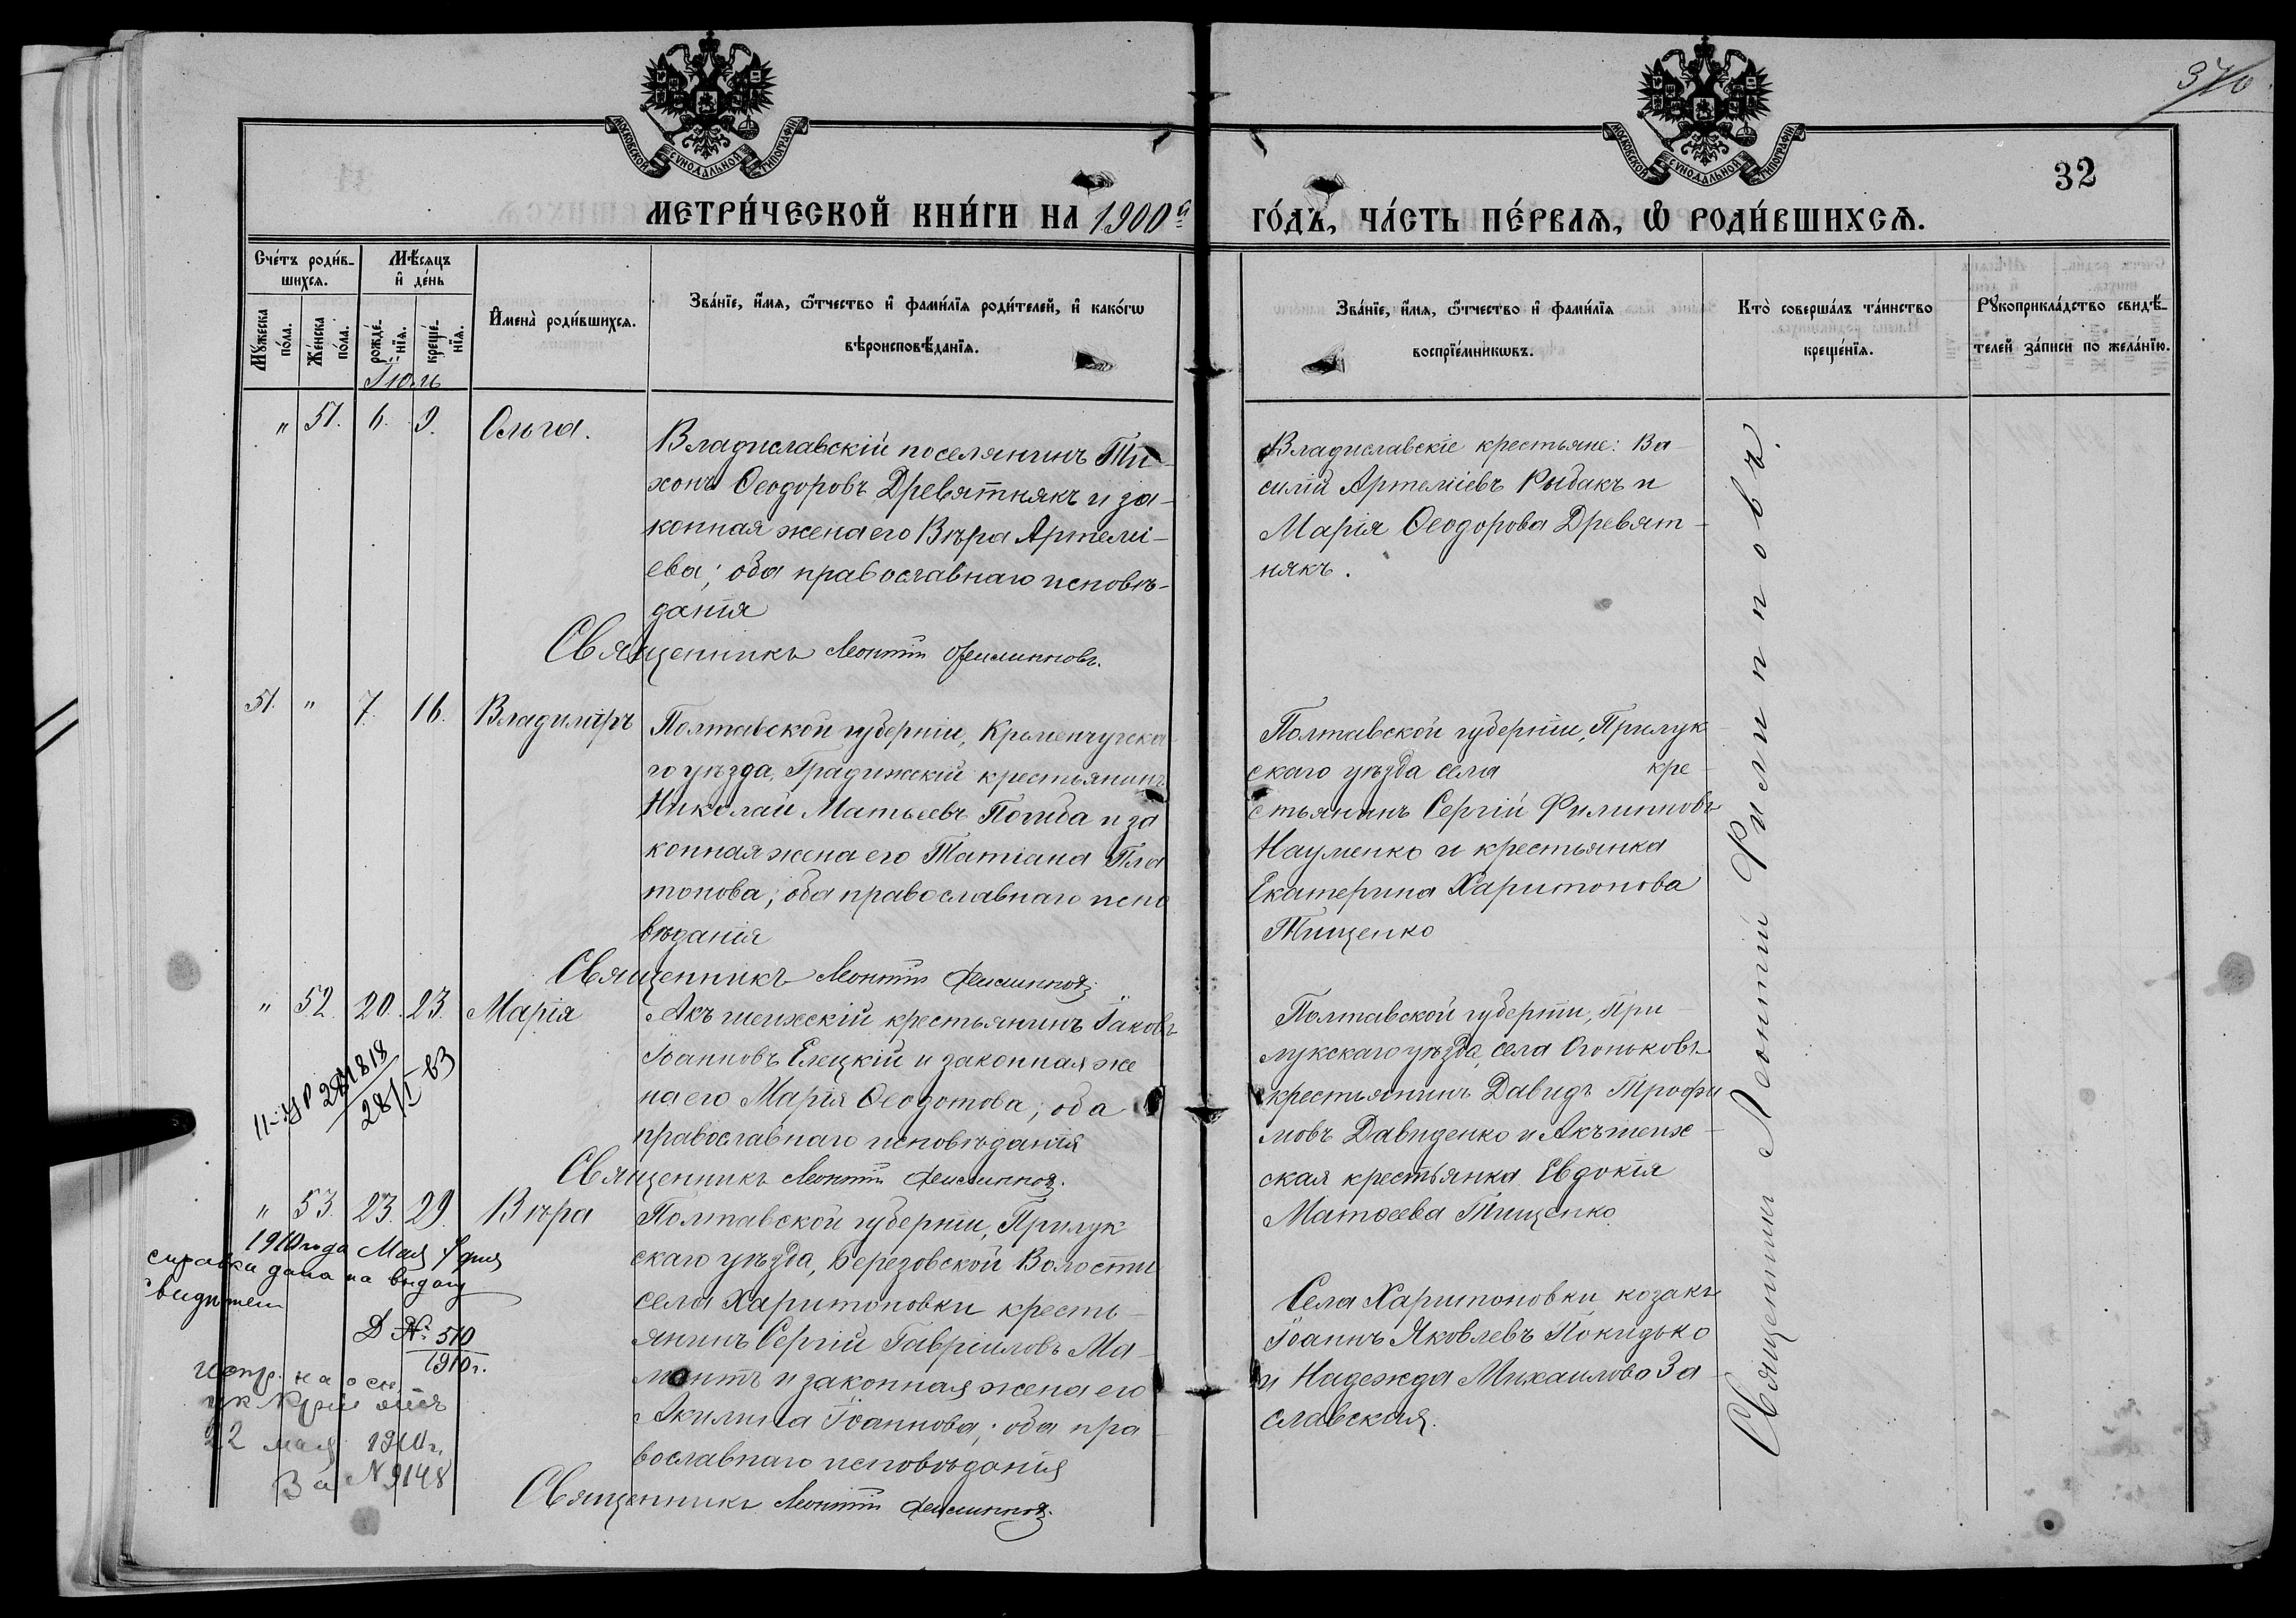 370
МОСКОВСКОЙ СѴНОДАЛЬНОЙ ТИПОГРАФІИ
МОСКОВСКОЙ СѴНОДАЛЬНОЙ ТИПОГРАФІИ
32
МЕТРИ́ЧЕСКОЙ КНИ́ГИ НА 1900й
ГО́ДЪ, ЧА́СТЬ ПЕ́РВАѦ, Ѡ҆ РОДИ́ВШИХСѦ.
Сче́тъ роди́в-
шихсѧ.
Мѣ́сѧцъ
и҆ де́нь
Мꙋ́жеска
по́ла.
Же́нска
по́ла.
рожде́-
нїѧ.
креще́-
нїѧ.
И҆мена̀ роди́вшихсѧ.
Зва́нїе, и҆́мѧ, ѻ҆́тчество и҆ фами́лїѧ роди́телей, и҆ како́гѡ
вѣроисповѣ́данїѧ.
Зва́нїе, и҆́мѧ, ѻ҆́тчество и҆ фами́лїѧ
воспрїе́мникѡвъ.
Кто̀ соверша́лъ та́инство
креще́нїѧ.
Рꙋкоприкла́дство свидѣ́-
телей за́писи по жела́нїю.
Іюль
" 51. 6. 9. Ольга.
Владиславскій поселянинъ Ти-
хонъ Ѳеодоровъ Древятнякъ и за-
конная жена его Вѣра Артемі-
ева; оба православнаго исповѣ-
данія
Священникъ Леонтій Филипповъ.
Владиславскіе крестьяне: Ва-
силій Артеміевъ Рыбакъ и
Марія Ѳеодорова Древят-
някъ.
51. " 7. 16. Владиміръ
Полтавской губерніи, Кременчугска-
го уѣзда, Градижскій крестьянинъ
Николай Матвеевъ Погиба и за
конная жена его Татіана Пла
тонова; оба православнаго испо
вѣданія
Священникъ Леонтій Филипповъ.
Полтавской губерніи, Прилук
скаго уѣзда села кре-
стьянинъ Сергій Филипповъ
Науменко и крестьянка
Екатерина Харитонова
Тищенко
" 52. 20. 23. Марія
Акъ шеихскій крестьянинъ Іаковъ
Іоанновъ Елецкій и законная же
на его Марія Ѳеодотова; оба
православнаго исповѣданія
Священникъ Леонтій Филипповъ.
Полтавской губерніи, При-
лукскаго уѣзда, села Огоньковъ
крестьянинъ Давидъ Трофи
мовъ Давиденко и Акъшеих-
ская крестьянка Евдокія
Матѳеева Тищенко.
28/I 63
" 53. 23. 29. Вѣра
Полтавской губерніи, Прилук
скаго уѣзда, Березовской Волости
села Харитоновки кресть-
янинъ Сергій Гавріиловъ Ма-
монтъ и законная жена его
Акилина Іоаннова; оба пра
вославнаго исповѣданія
Священникъ Леонтій Филипповъ.
Села Харитоновки козакъ
Іоаннъ Яковлевъ Покидько
и Надежда Михаилова За-
славская.
1910 года Мая дня
справка дана на выдачу
Д №: 510
1910 г.
22 мая 1910 г.
За N 9148
Священникъ Леонтій Филипповъ.